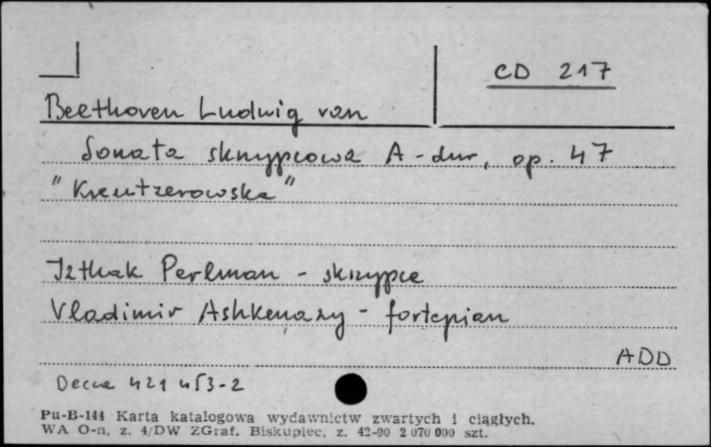 CD 217
Beethoven Ludwig van
Sonata skrzypcowa A-dur, op. 47
"Kreutzerowska"
Itzhak Perlman - skrzypce
Vladimir Ashkenazy - fortepian
ADD
Decca 421 453-2
Pu-B-144 Karta katalogowa wydawnictw zwartych i ciągłych.
WA O-n, z. 4/DW ZGraf. Biskupiec, z. 42-90 2 070 000 szt.